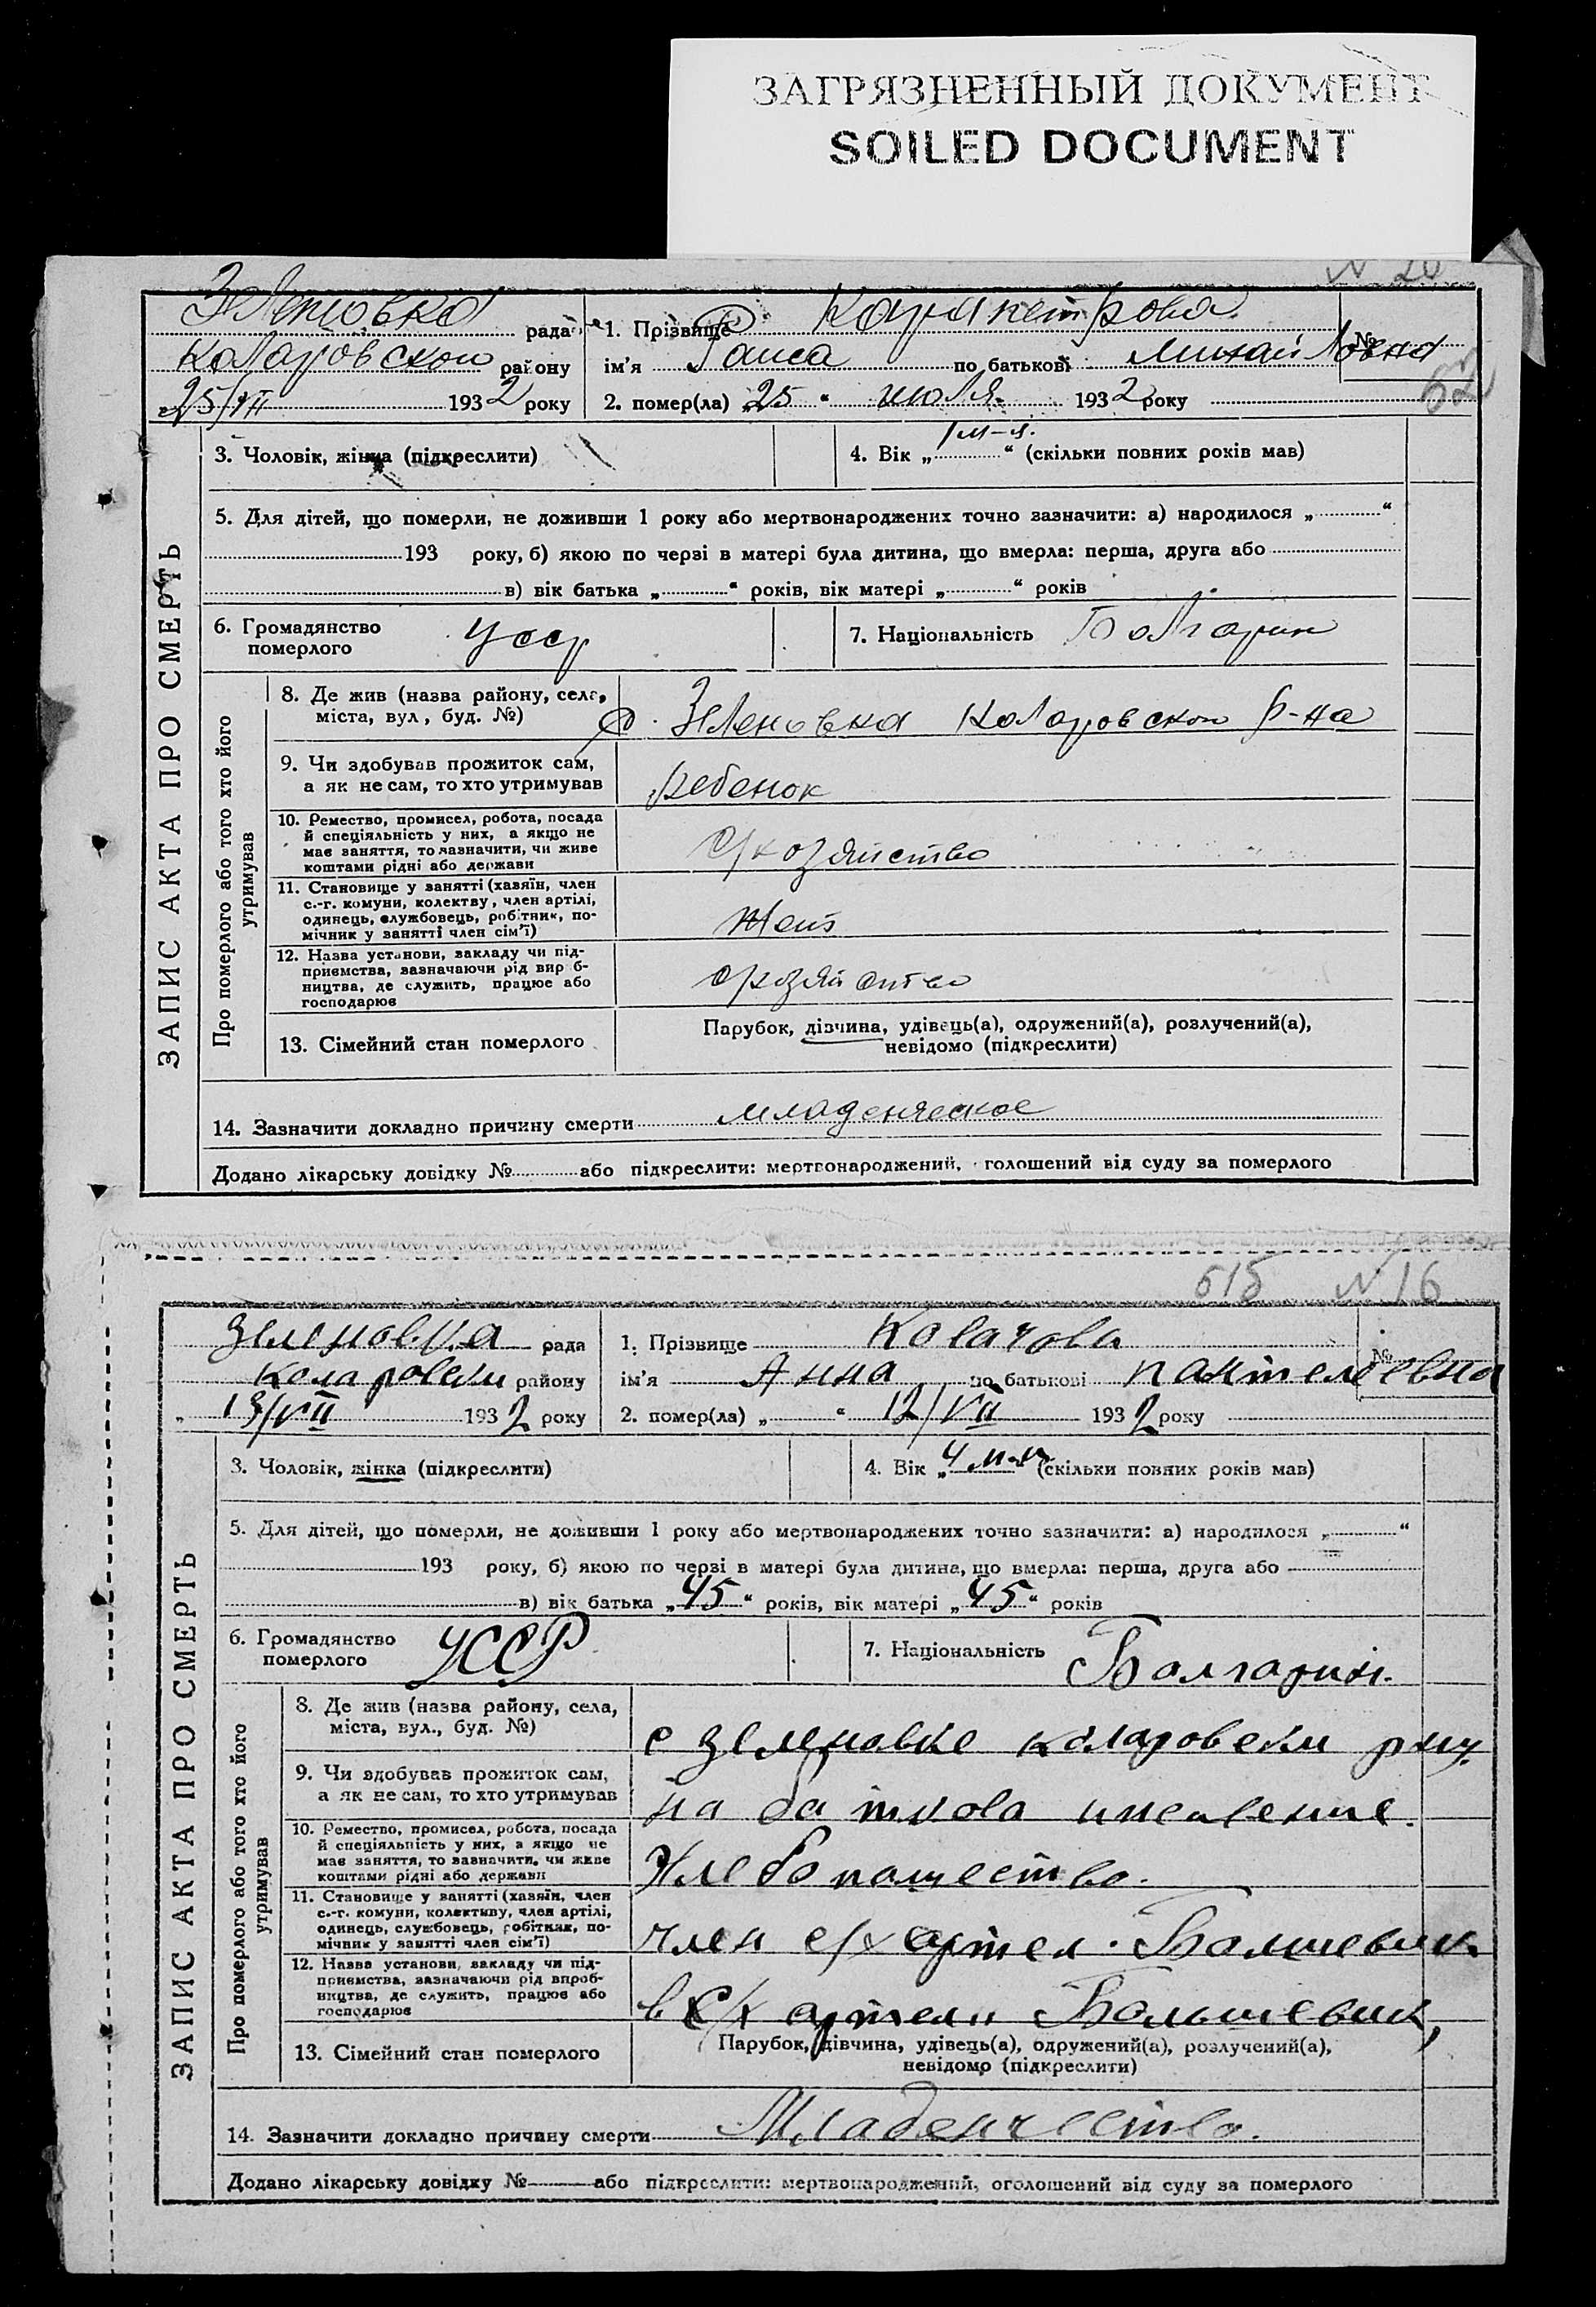 ЗАГРЯЗНЕННЫЙ ДОКУМЕНТ
SOILED DOCUMENT
N 20
Зеленовка рада 1. Прізвище Карапетрова №
Коларовском району ім'я Раиса по батькові Михайловна
„25/VII 1932 року 2. помер(ла) „25 “ июля 1932 року
ЗАПИС АКТА ПРО СМЕРТЬ
3. Чоловік, жінка (підкреслити) 4. Вік „1 м-ц.“ (скільки повних років мав)
5. Для дітей, що померли, не доживши 1 року або мертвонароджених точно зазначити: а) народилося „ “
193 року, б) якою по черзі в матері була дитина, що вмерла: перша, друга або
в) вік батька „ “ років, вік матері „ “ років
6. Громадянство померлого Усср 7. Національність Болгарин
Про померлого або того хто його утримував
8. Де жив (назва району, села, міста, вул, буд. №) с. Зеленовка Коларовском р-на
9. Чи здобував прожиток сам, а як не сам, то хто утримував ребенок
10. Ремество, промисел, робота, посада й спеціяльність у них, а якщо не має заняття, то зазначити, чи живе коштами рідні або держави с/хозяйство
11. Становище у занятті (хазяїн, член с.-г. комуни, колектву, член артілі, одинець, службовець, робітник, помічник у занятті член сім'ї)
12. Назва установи, закладу чи підприємства, зазначаючи рід виробництва, де служить, працює або господарює с/хозяйство
13. Сімейний стан померлого Парубок, дівчина, удівець(а), одружений(а), розлучений(а),
невідомо (підкреслити)
14. Зазначити докладно причину смерти младенческое
Додано лікарську довідку № або підкреслити: мертвонароджений, голошений від суду за померлого
515 N 16
Зеленовка рада 1. Прізвище Ковачова №
Коларовски району ім'я Анна по батькові Пантелеевна
„ 13/VII 1932 року 2. помер(ла) „ “ 12/VII 1932 року
ЗАПИС АКТА ПРО СМЕРТЬ
3. Чоловік, жінка (підкреслити) 4. Вік „4 м-ц“ (скільки повних років мав)
5. Для дітей, що померли, не доживши 1 року або мертвонароджених точно зазначити: а) народилося „ “
193 року, б) якою по черзі в матері була дитина, що вмерла: перша, друга або
в) вік батька „45“ років, вік матері „45“ років
6. Громадянство померлого УССР 7. Національність Болгарин.
Про померлого або того хто його утримував
8. Де жив (назва району, села, міста, вул., буд. №) с Зеленовке Коларовски
9. Чи здобував прожиток сам, а як не сам, то хто утримував на
10. Ремество, промисел, робота, посада й спеціяльність у них, а якщо не має заняття, то зазначити, чи живе коштами рідні або держави Хлебопашество.
11. Становище у занятті (хазяїн, член с.-г. комуни, колективу, член артілі, одинець, службовець, робітник, помічник у занятті член сім'ї) член с/х артел. Болшевик
12. Назва установи, закладу чи підприємства, зазначаючи рід виробництва, де служить, працює або господарює в с/х артели Большевик,
13. Сімейний стан померлого Парубок, дівчина, удівець(а), одружений(а), розлучений(а),
невідомо (підкреслити)
14. Зазначити докладно причину смерти Младенчество.
Додано лікарську довідку № або підкреслити: мертвонароджений, оголошений від суду за померлого